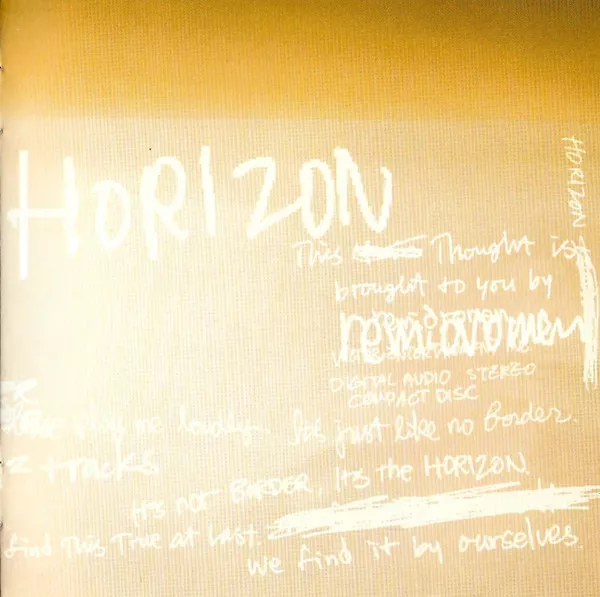 HORIZON
HORIZON
This Thought is
brought to you by
remioromen
remioromen
DIGITAL AUDIO STEREO
COMPACT DISC
play me loudly. Its just like no border.
tracks
It's NOT BORDER, It's the HORIZON.
find This True at Last.
we find it by ourselves.